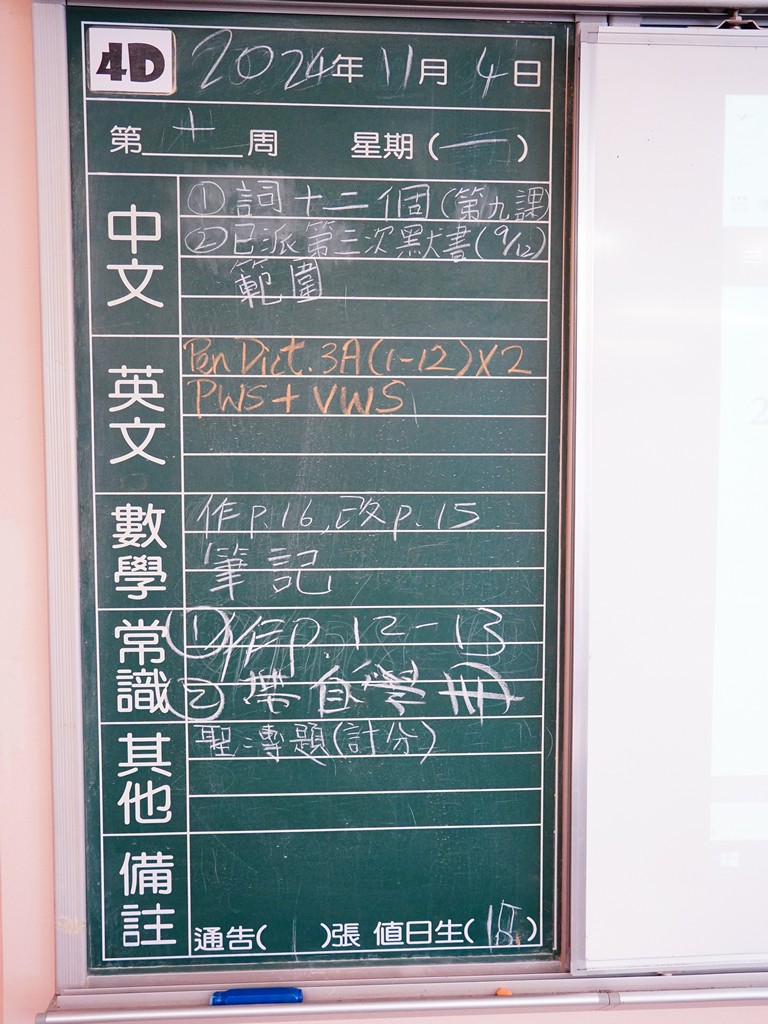 4D 2024年 11月 4日
第 十 周 星期(一)
中文
①詞十二個(第九課)
②已派第三次默書(9/12)
範圍
英文
Pen Dict. 3A(1-12)X2
PWS+VWS
數學
作p.16,改p.15
筆記
常識
①作p.12-13
②帶自學冊
其他
聖:專題(計分)
備註
通告( )張 值日生( )